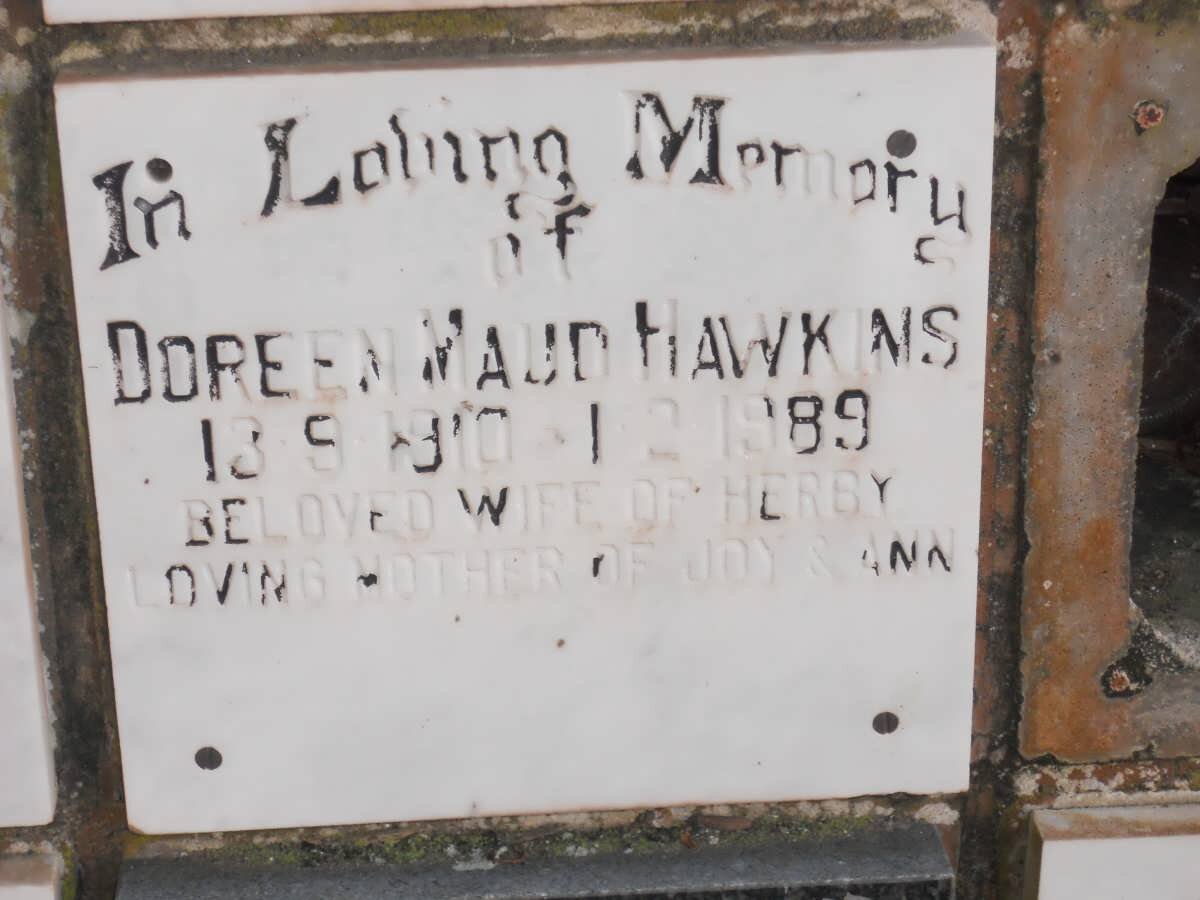 In Loving Memory
of
DOREEN MAUD HAWKINS
13·9·1910 - 1·2·1989
BELOVED WIFE OF HERBY
LOVING MOTHER OF JOY & ANN